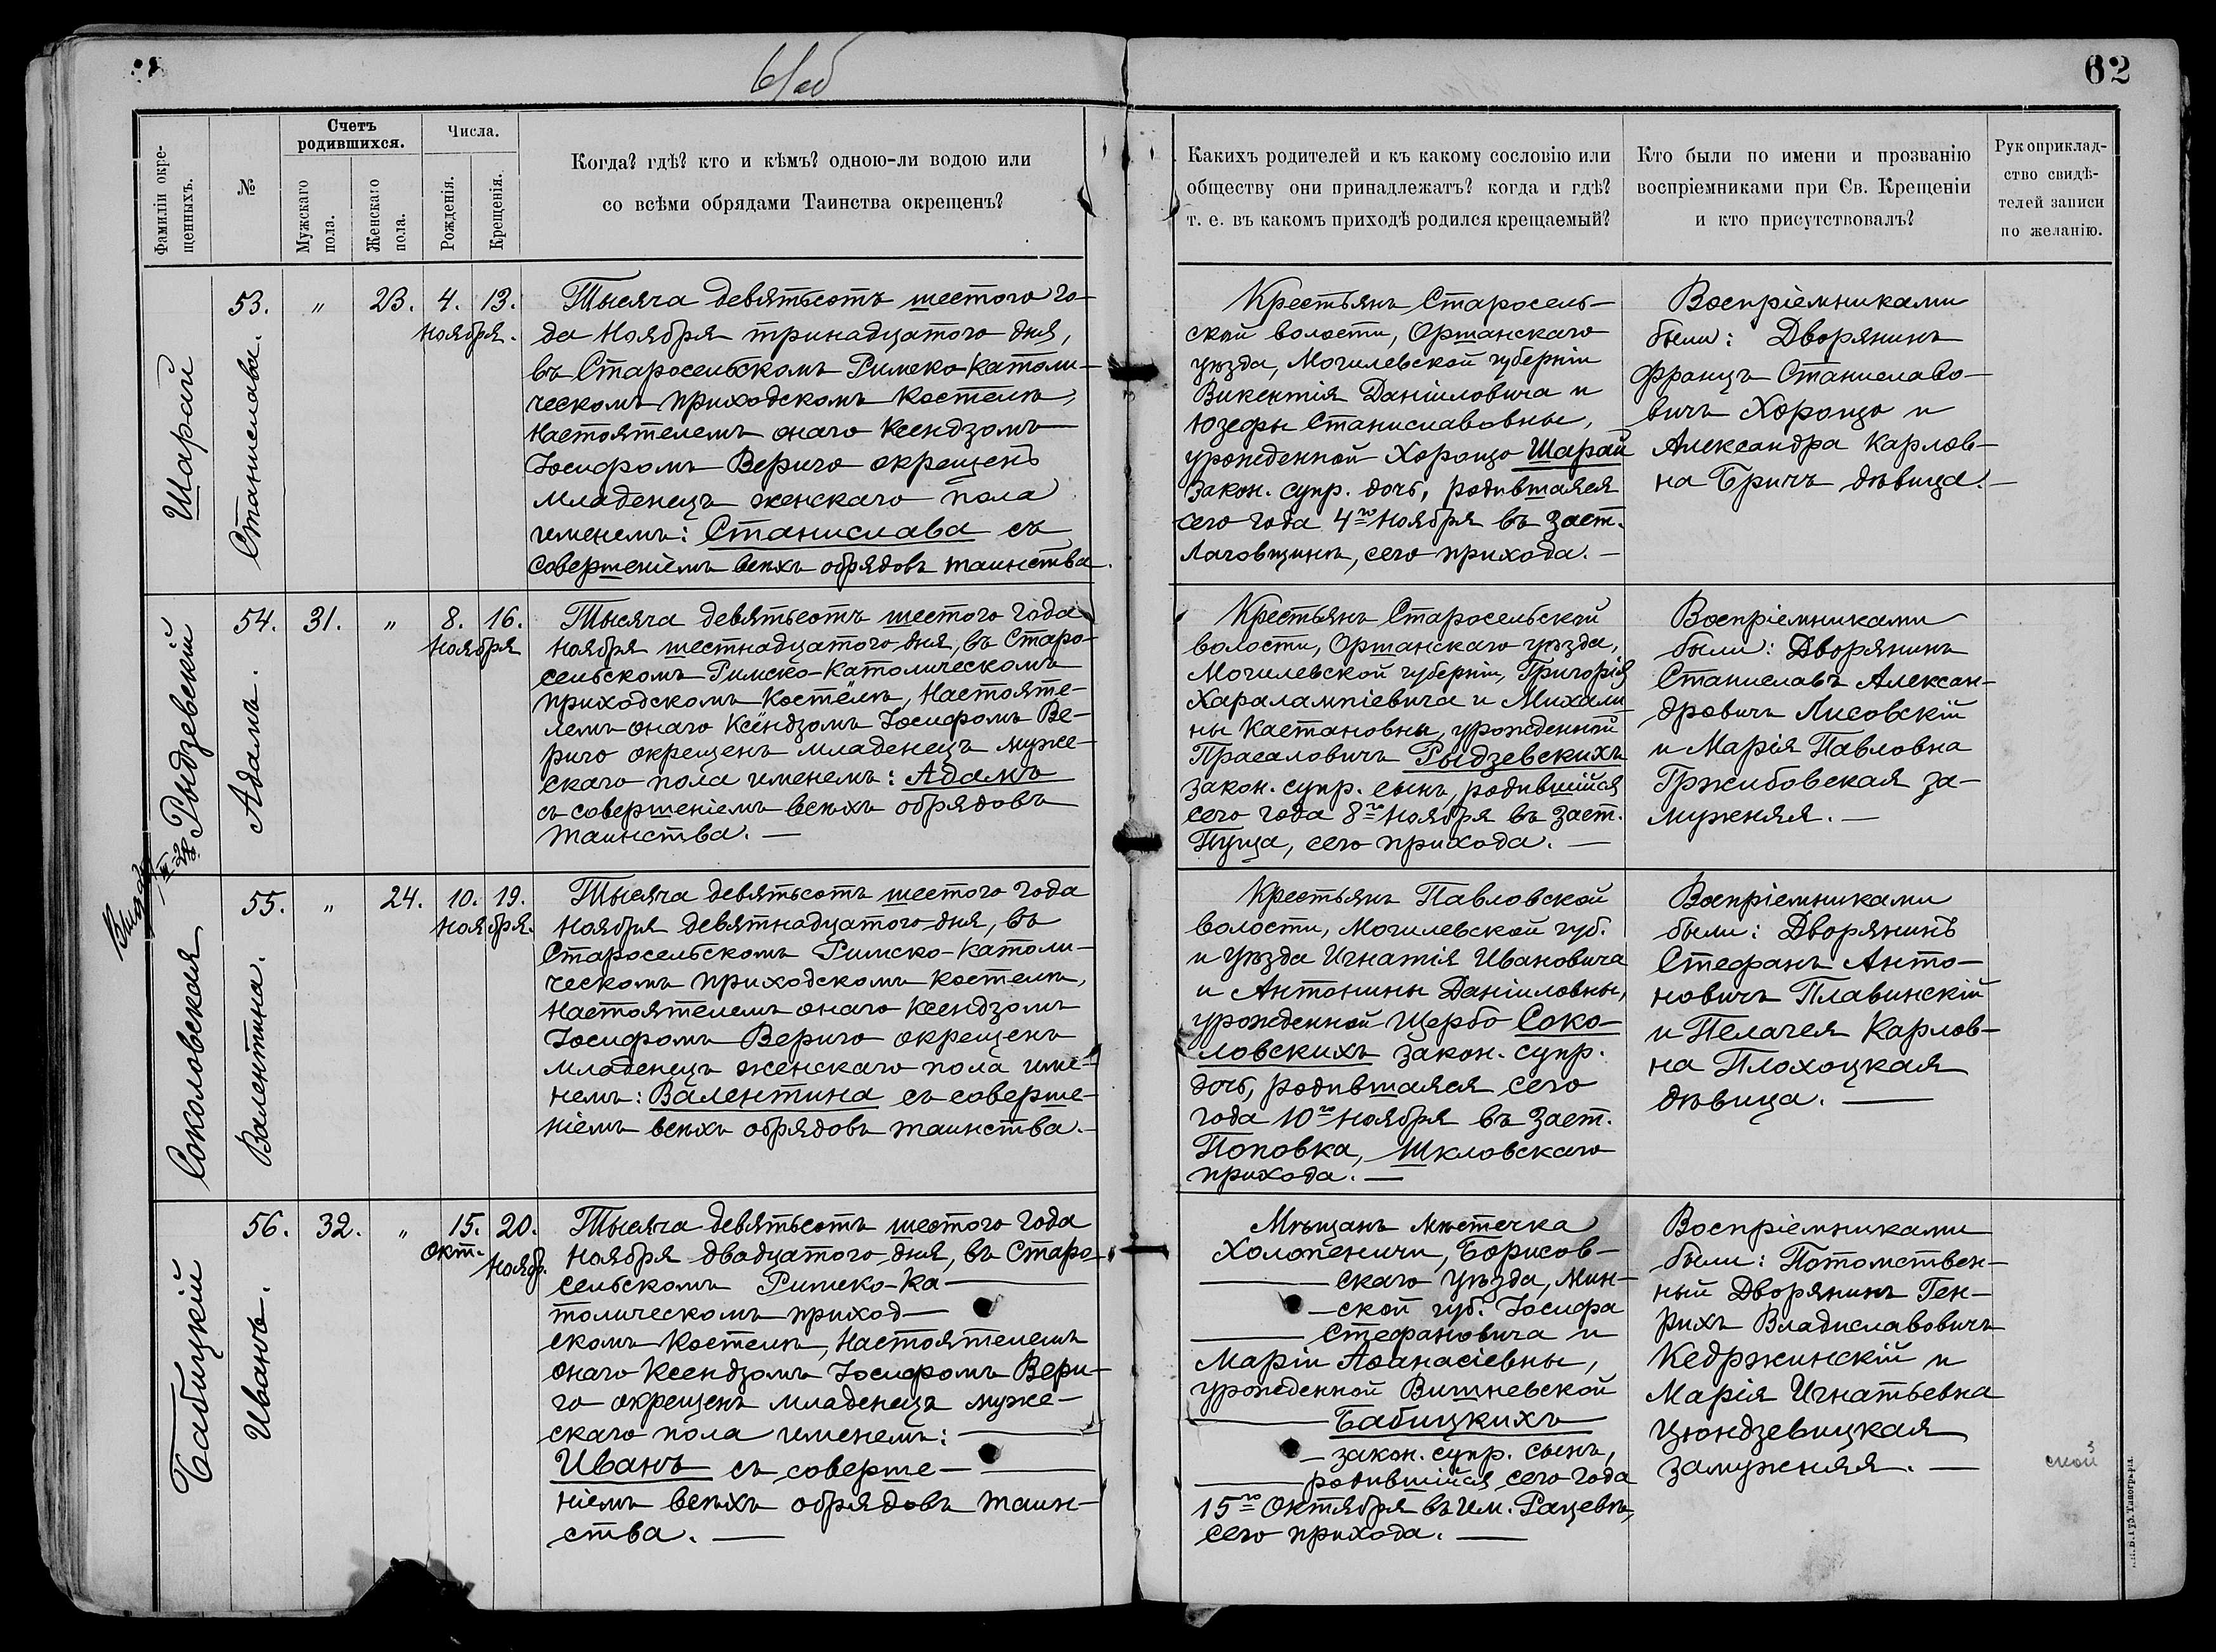 61об
62
Фамиліи окре-
щенныхъ.
№
Счетъ
родившихся.
Мужскаго
пола.
Женскаго
пола.
Числа.
Рожденія.
Крещенія.
Когда? гдѣ? кто и кѣмъ? одною-ли водою или
со всѣми обрядами Таинства окрещенъ?
Какихъ родителей и къ какому сословію или
обществу они принадлежатъ? когда и гдѣ?
т. е. въ какомъ приходѣ родился крещаемый?
Кто были по имени и прозванію
воспріемниками при Св. Крещеніи
и кто присутствовалъ?
Рукоприклад-
ство свидѣ-
телей записи
по желанію.
Шарай
Станислава.
53. " 23. 4. 13.
Ноября.
Тысяча девятьсотъ шестого го-
да Ноября тринадцатого дня,
въ Старосельскомъ Римско-католи-
ческомъ приходскомъ костелѣ,
Настоятелемъ онаго Ксендзомъ
Іосифомъ Вериго окрещенъ
младенецъ женскаго пола
именемъ: Станислава съ
совершеніемъ всѣхъ обрядовъ таинства.
Крестьянъ Старосель-
ской волости, Оршанскаго
уѣзда, Могилевской губерніи
Викентія Даніиловича и
Юзефы Станиславовны,
урожденной Хоронцо Шарай
закон. супр. дочь, родившаяся
сего года 4го Ноября въ заст.
Лаговщинѣ, сего прихода. —
Воспріемниками
были: Дворянинъ
Францъ Станиславо-
вичъ Хоронцо и
Александра Карлов-
на Бричъ дѣвица. —
Рыдзевскій
Адамъ.
54. 31. " 8. 16.
Ноября
Тысяча девятьсотъ шестого года
Ноября шестнадцатого дня, въ Старо-
сельскомъ Римско-Католическомъ
приходскомъ Костёлѣ, Настояте-
лемъ онаго Ксёндзомъ Іосифомъ Ве-
риго окрещенъ младенецъ муже-
скаго пола именемъ: Адамъ
съ совершеніемъ всѣхъ обрядовъ
таинства. —
Крестьянъ Старосельской
волости, Оршанскаго уѣзда,
Могилевской губерніи, Григорія
Харалампіевича и Михали-
ны Каетановны, урожденной
Прасаловичъ Рыдзевскихъ
закон. супр. сынъ, родившійся
сего года 8го Ноября въ заст.
Пуща, сего прихода. —
Воспріемниками
были: Дворянинъ
Станиславъ Алексан-
дровичъ Лисовскій
и Марія Павловна
Гржибовская за-
мужняя. —
Соколовская
Валентина.
55. " 24. 10. 19.
Ноября.
Тысяча девятьсотъ шестого года
Ноября девятнадцатого дня, въ
Старосельскомъ Римско-католи-
ческомъ приходскомъ костелѣ,
Настоятелемъ онаго Ксендзомъ
Іосифомъ Вериго окрещенъ
младенецъ женскаго пола име-
немъ: Валентина съ соверше-
ніемъ всѣхъ обрядовъ таинства. —
Крестьянъ Павловской
волости, Могилевской губ.
и уѣзда Игнатія Ивановича
и Антонины Даніиловны,
урожденной Щербо Соко-
ловскихъ закон. супр.
дочь, родившаяся сего
года 10го Ноября въ заст.
Поповка, Шкловскаго
прихода. —
Воспріемниками
были: Дворянинъ
Стефанъ Анто-
новичъ Плавинскій
и Пелагея Карлов-
на Плохоцкая
дѣвица. —
Бабицкій
Иванъ.
56. 32. " 15. 20.
Окт. Ноябр.
Тысяча девятьсотъ шестого года
Ноября двадцатого дня, въ Старо-
сельскомъ Римско-Ка-
толическомъ приход-
скомъ Костелѣ, Настоятелемъ
онаго Ксендзомъ Іосифомъ Вери-
го окрещенъ младенецъ муже-
скаго пола именемъ:
Иванъ съ соверше-
ніемъ всѣхъ обрядовъ таин-
ства. —
Мѣщанъ мѣстечка
Холопеничи, Борисов-
скаго уѣзда, Мин-
ской губ. Іосифа
Стефановича и
Маріи Аѳанасіевны,
урожденной Вишневской
Бабицкихъ
закон. супр. сынъ,
родившійся сего года
15го Октября въ им. Рацевѣ,
сего прихода. —
Воспріемниками
были: Потомствен-
ный Дворянинъ Ген-
рихъ Владиславовичъ
Кедржинскій и
Марія Игнатьевна
Цюндзевицкая
замужняя. —
ской